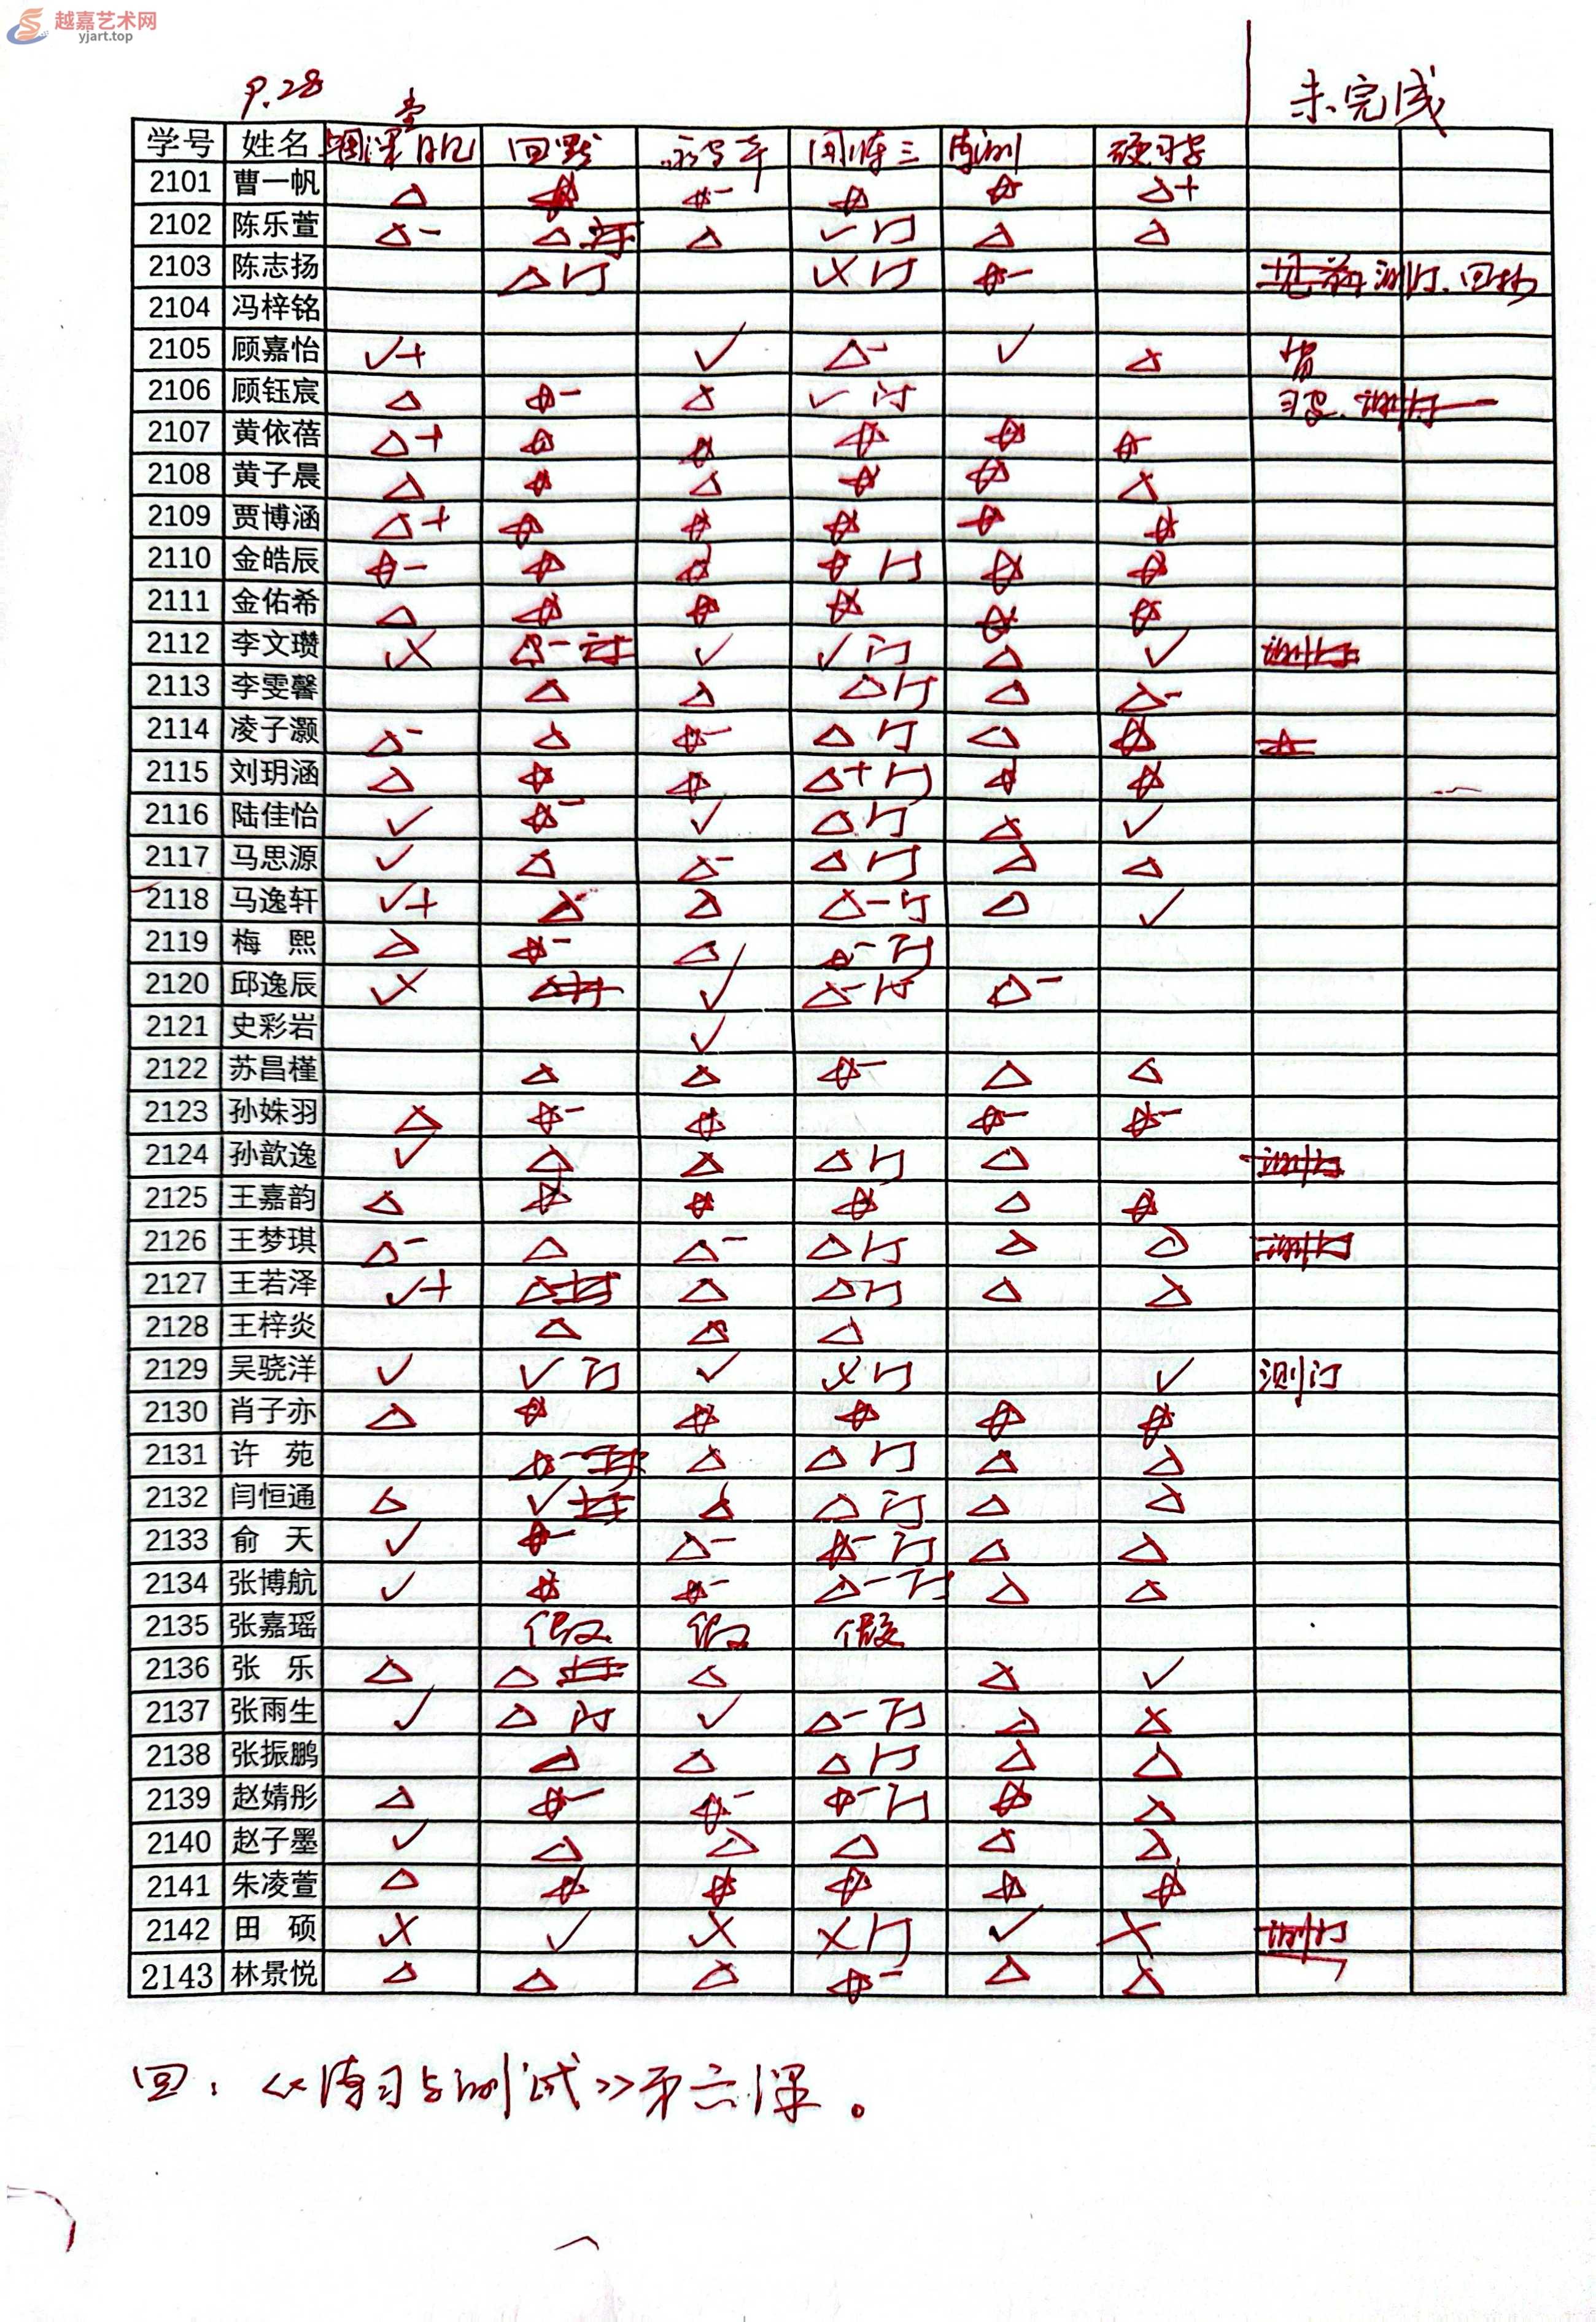 越嘉艺术网
yjart.top
P.28
未完成
堂
学号 姓名 课 日记 回默 周练三 练测 硬习字
2101 曹一帆 △ ☆ ☆- ☆ ☆ △+
2102 陈乐萱 △- △ △ ✓订 △ △
2103 陈志扬 △订 ✓×订 ☆- 测订、回抄
2104 冯梓铭
2105 顾嘉怡 ✓+ ✓ △- ✓ △
2106 顾钰宸 △ ☆- △ ✓订
2107 黄依蓓 △+ ☆ ☆ ☆ ☆ ☆-
2108 黄子晨 △ ☆ △ ☆ ☆ △
2109 贾博涵 △+ ☆ ☆ ☆ ☆ ☆
2110 金皓辰 ☆- ☆ ☆ ☆订 ☆ ☆
2111 金佑希 △ ☆ ☆ ☆ ☆ ☆
2112 李文瓒 ✓× △- ✓ ✓订 △ ✓
2113 李雯馨 △ △ △订 △ △-
2114 凌子灏 △- △ ☆- △订 △ ☆
2115 刘玥涵 △ ☆ ☆ △+订 ☆ ☆
2116 陆佳怡 ✓ ☆- ✓ △订 △ ✓
2117 马思源 ✓ △ △- △订 △ △
2118 马逸轩 ✓+ △ △ △-订 △ ✓
2119 梅 熙 △ ☆- △ ☆-订
2120 邱逸辰 ✓× △ ✓ △-订 △-
2121 史彩岩 ✓
2122 苏昌槿 △ △ ☆- △ △
2123 孙姝羽 △ ☆- ☆ ☆- ☆-
2124 孙歆逸 ✓ △ △ △订 △ 测订
2125 王嘉韵 △ ☆ ☆ ☆ △ ☆
2126 王梦琪 △- △ △- △订 △ △ 测订
2127 王若泽 ✓+ △ △ △订 △ △
2128 王梓炎 △ △ △
2129 吴骁洋 ✓ ✓订 ✓ ✓×订 ✓ 测订
2130 肖子亦 △ ☆ ☆ ☆ ☆ ☆
2131 许 苑 ☆- △ △订 △ △
2132 闫恒通 △ ✓ △ △订 △ △
2133 俞 天 ✓ ☆- △- ☆-订 △ △
2134 张博航 ✓ ☆ ☆- △-订 △ △
2135 张嘉瑶 假 假 假
2136 张 乐 △ △ △ △ ✓
2137 张雨生 ✓ △订 ✓ △-订 △ △
2138 张振鹏 △ △ △订 △ △
2139 赵婧彤 △ ☆- ☆- ☆-订 ☆ △
2140 赵子墨 ✓ △ △ △ △ △
2141 朱凌萱 △ ☆ ☆ ☆ ☆ ☆
2142 田 硕 ✓× ✓ ✓× ×订 ✓ × 测订
2143 林景悦 △ △ △ ☆- △ △
回：《练习与测试》第六课。